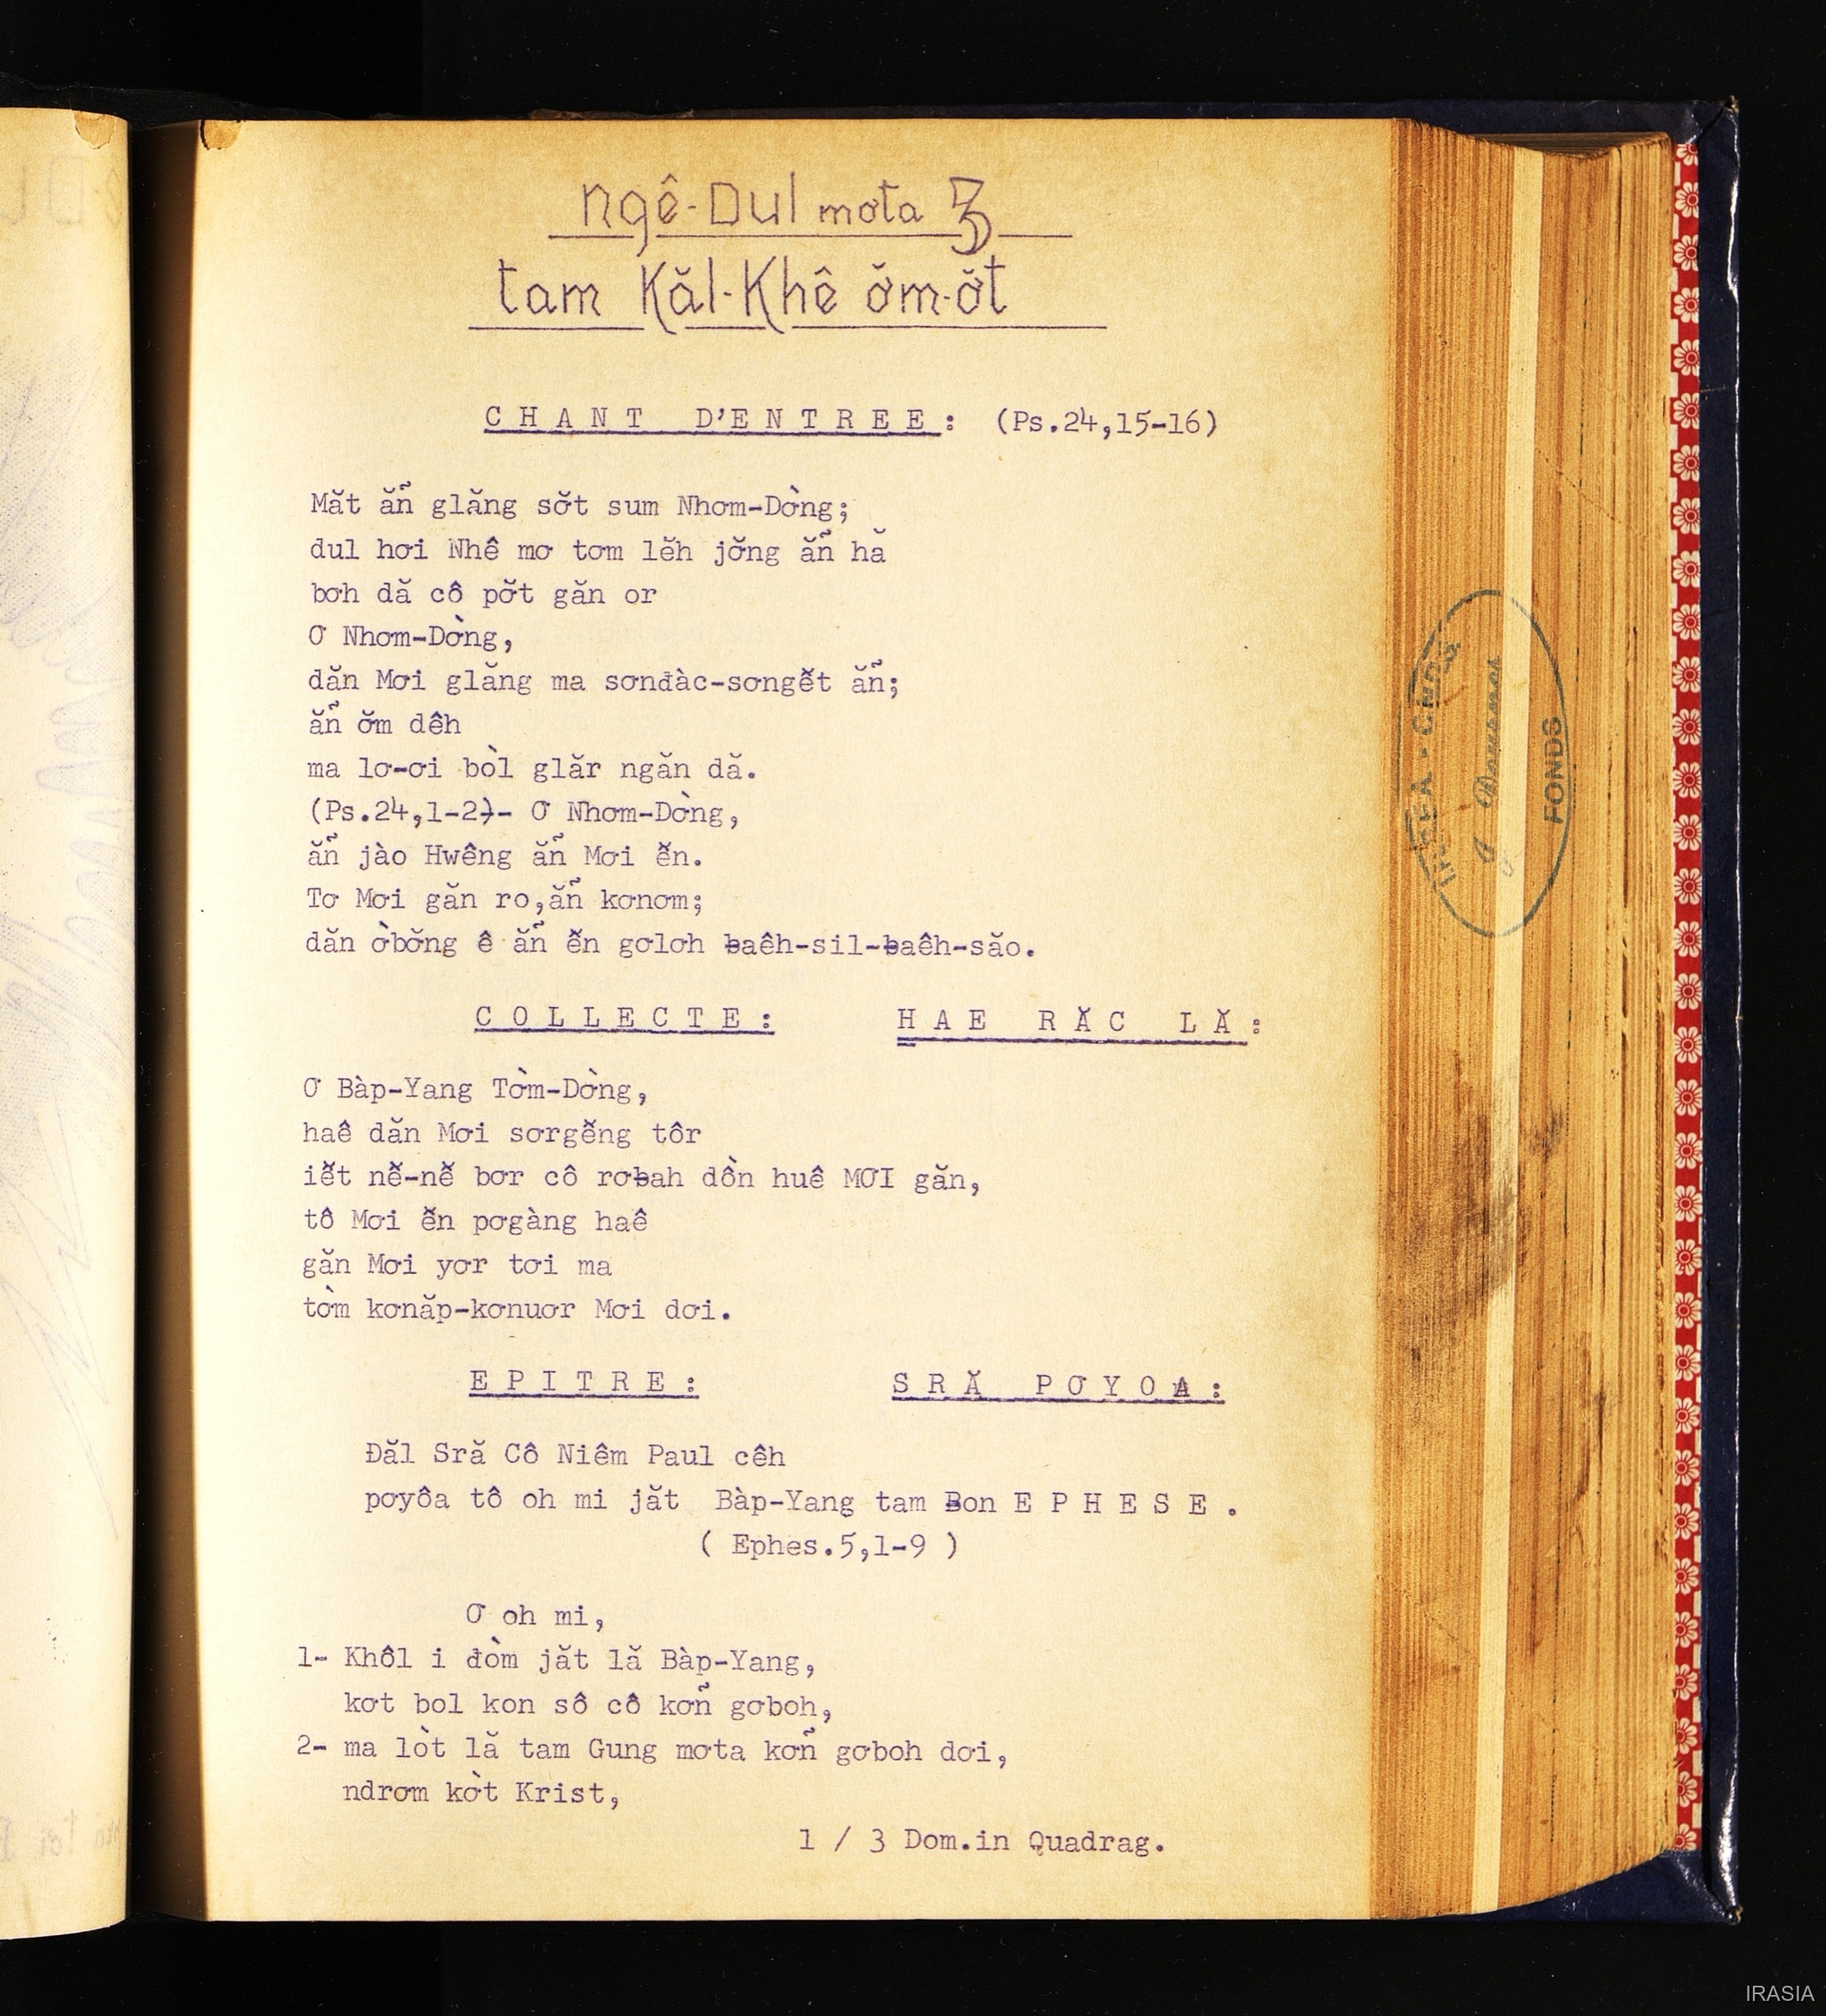 ngê-Dul mơta 3
tam Kăl-Khê ơ̆m-ơ̆t
CHANT D'ENTREE: (Ps.24,15-16)
Măt ăñ glăng sơ̆t sum Nhơm-Dờng;
dul hơi Nhê mơ tơm lĕh jơ̆ng ăñ hă
bơh dă cô pơ̆t găn or
Ơ Nhơm-Dờng,
dăn Mơi glăng ma sơnđàc-sơngê̆t ăñ;
ăñ ơ̆m dêh
ma lơ-ơi bòl glăr ngăn dă.
(Ps.24,1-2)- Ơ Nhơm-Dờng,
ăñ jào Hwêng ăñ Mơi ê̆n.
Tơ Mơi găn ro,ăñ kơnơm;
dăn ờbơ̆ng ê ăñ ê̆n gơlơh ƀaêh-sil-ƀaêh-săo.
COLLECTE: HAE RĂC LĂ:
Ơ Bàp-Yang Tờm-Dờng,
haê dăn Mơi sơrgê̆ng tôr
iê̆t nê̆-nê̆ bơr cô rơƀah dồn huê MƠI găn,
tô Mơi ê̆n pơgàng haê
găn Mơi yơr tơi ma
tờm kơnăp-kơnuơr Mơi dơi.
EPITRE: SRĂ PƠYOA:
Đăl Sră Cô Niêm Paul cêh
pơyôa tô oh mi jăt Bàp-Yang tam Ƀon EPHESE.
( Ephes.5,1-9 )
Ơ oh mi,
1- Khôl i đòm jăt lă Bàp-Yang,
kơt bol kon sô cô kơñ gơboh,
2- ma lòt lă tam Gung mơta kơñ gơboh dơi,
ndrơm kờt Krist,
1 / 3 Dom.in Quadrag.
FONDS
IRASIA